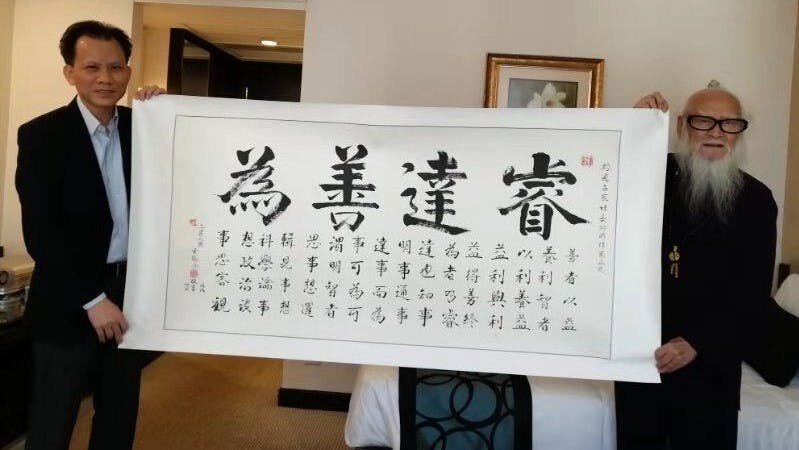 睿達善為
善者以益
養利智者
以利養益
益利與利
益得善終
為者乃睿
達也知事
明事通事
達事而為
事可為可
謂明智者
思事想邏
輯見事想
科學論事
想政治談
事思客觀